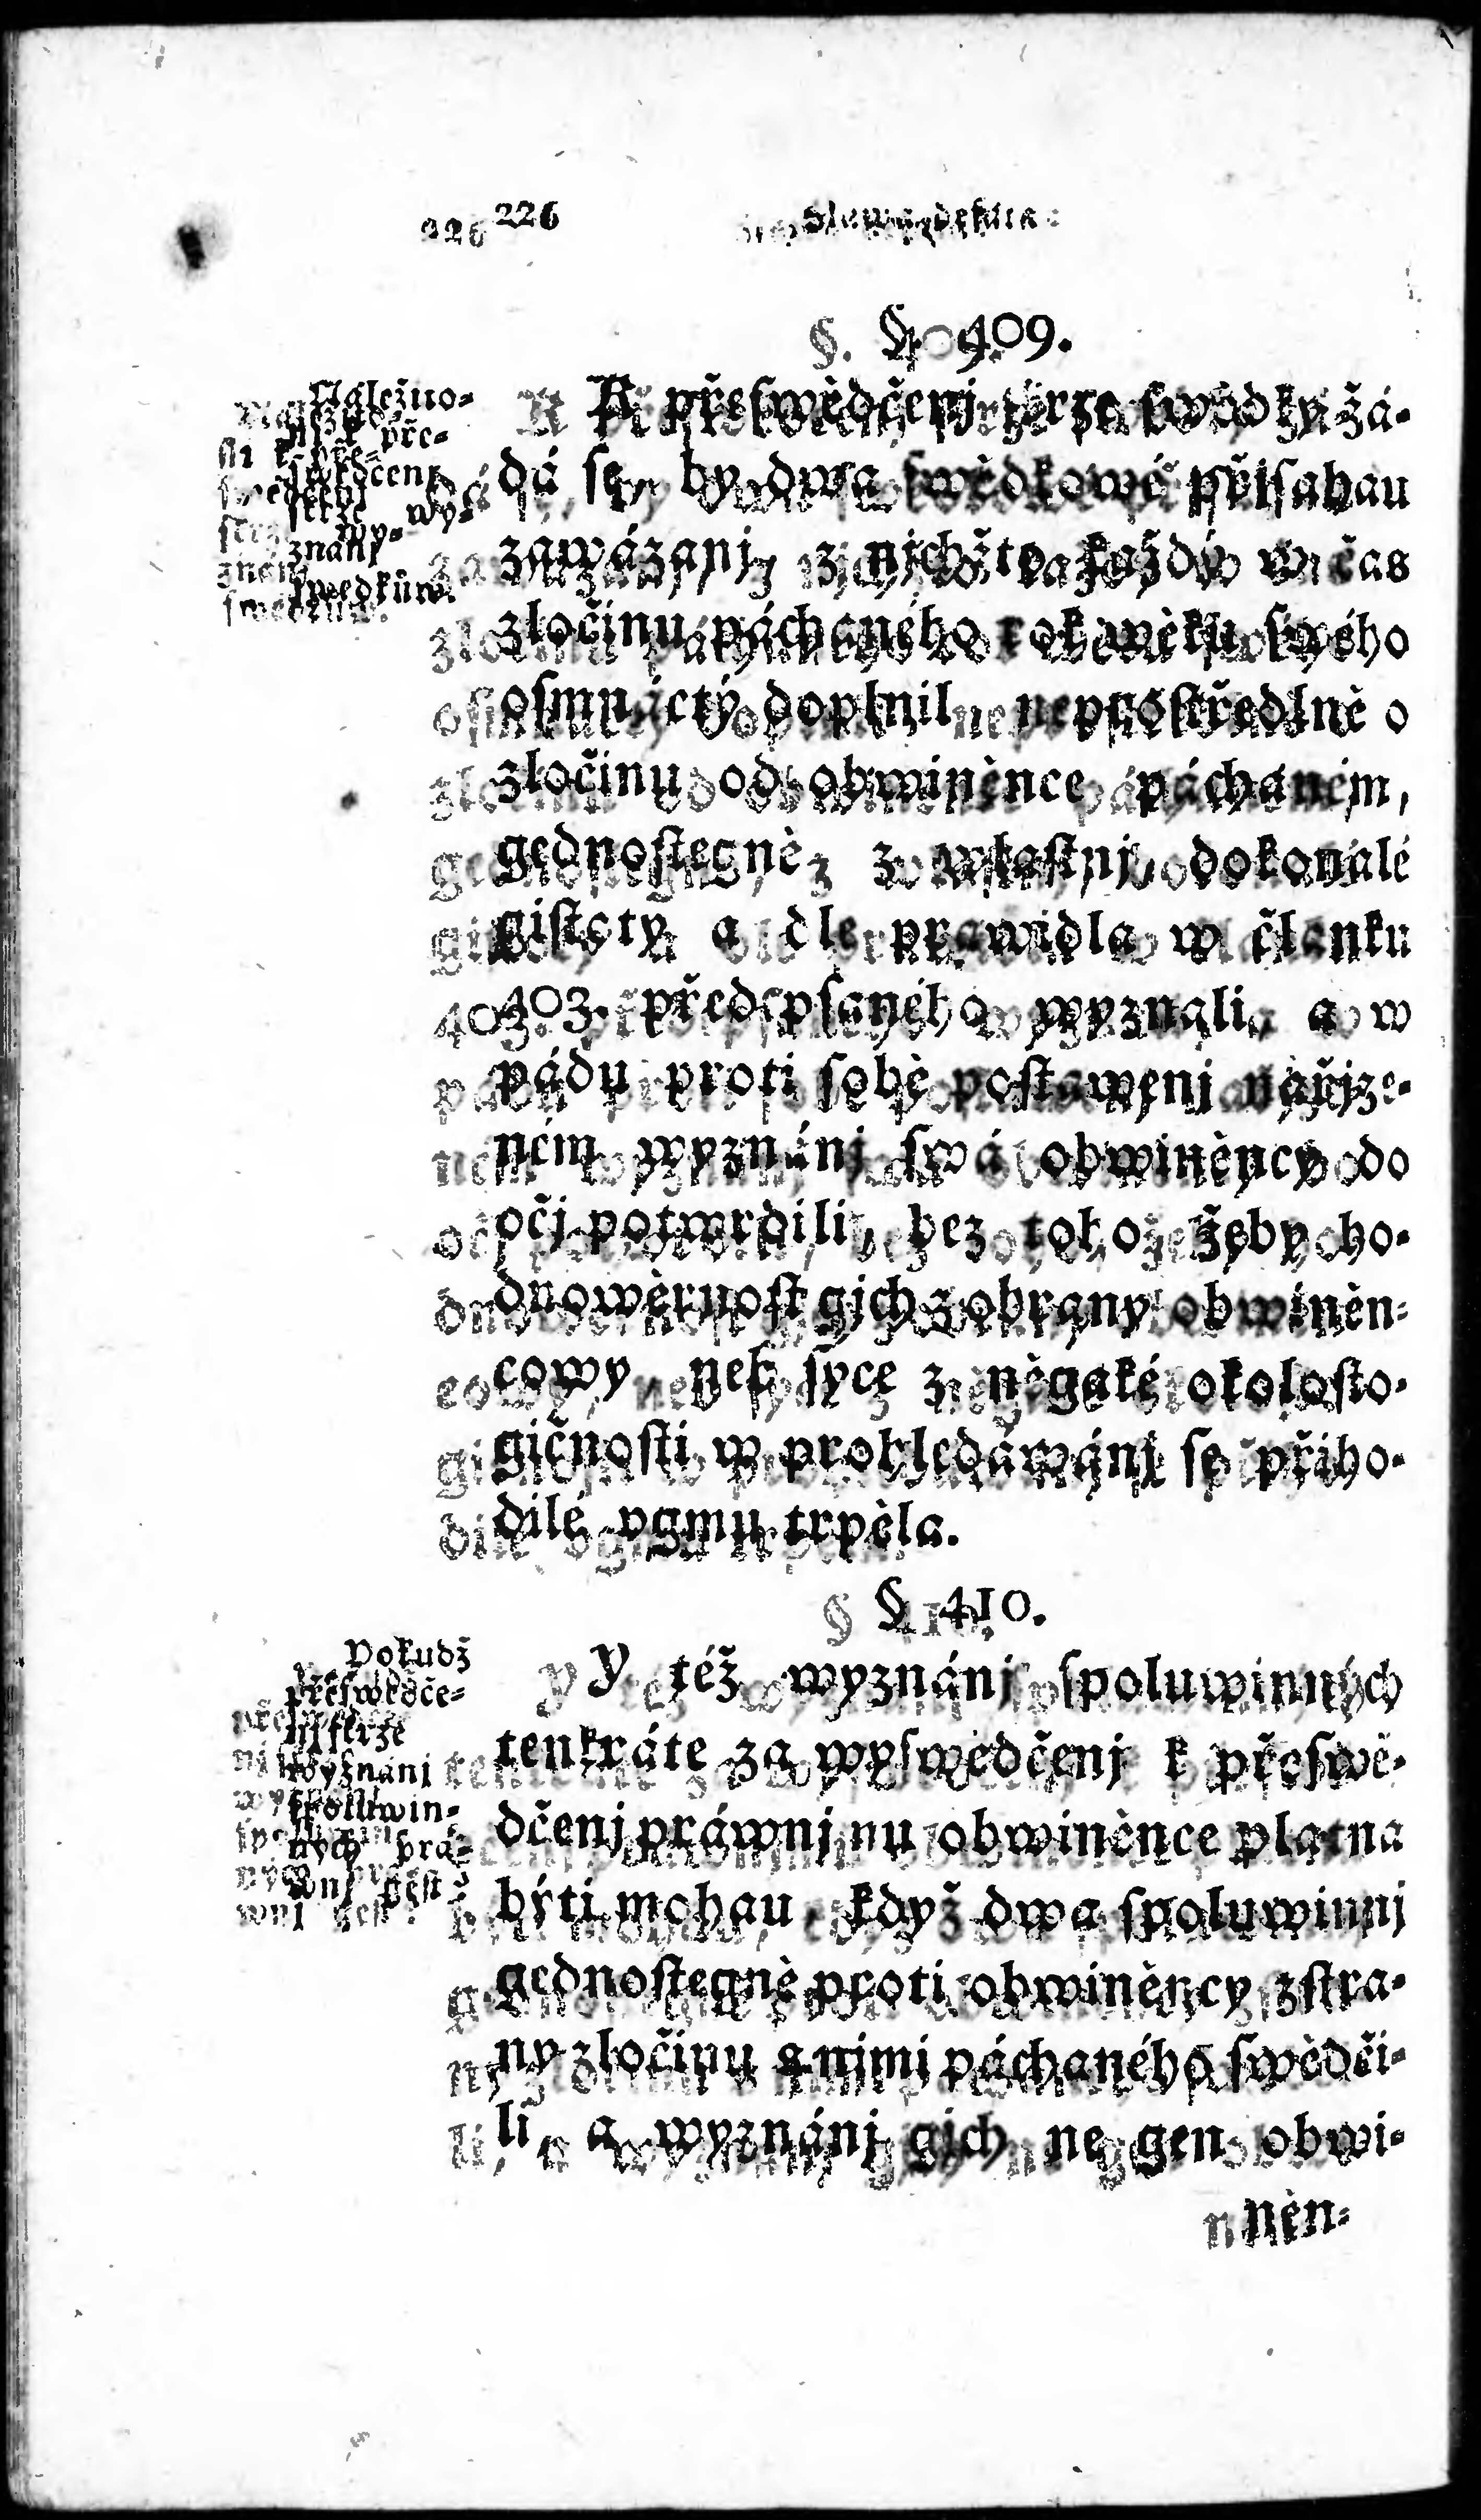 226
§. 409.
Náležno-
sti k pře-
swědčenj
skrze wy-
znánj
swědkůw.
K přeswědčenj skrze swědky žá-
dá se, by dwa swědkowé přjsahau
zawázanj, z nichžto každý w čas
zločinu páchaného rok wěku swého
osmnáctý doplnil, neprostředlně o
zločinu od obwiněnce páchaném,
gednostegně, z wlastnj, dokonalé
gistoty a dle prawidla w článku
403. předepsaného wyznali, a w
pádu proti sobě postawenj nařjze-
ném wyznánj swá obwiněncy do
očj potwrdili, bez toho, žeby ho-
dnowěrnost gich z obrany obwiněn-
cowy, neb syce z něgaké okolosto-
gičnosti w prohledáwánj se přiho-
dilé vgmu trpěla.
§ 410.
Pokudž
přeswědče-
nj skrze
wyznánj
spoluwin-
ných prá-
wnj gest?
Y též wyznánj spoluwinných
tenkráte za wyswědčenj k přeswě-
dčenj práwnjmu obwiněnce platna
býti mohau, když dwa spoluwinnj
gednostegně proti obwiněncy zstra-
ny zločinu s nimi páchaného swědči-
li, a wyznánj gich negen obwi-
něn-